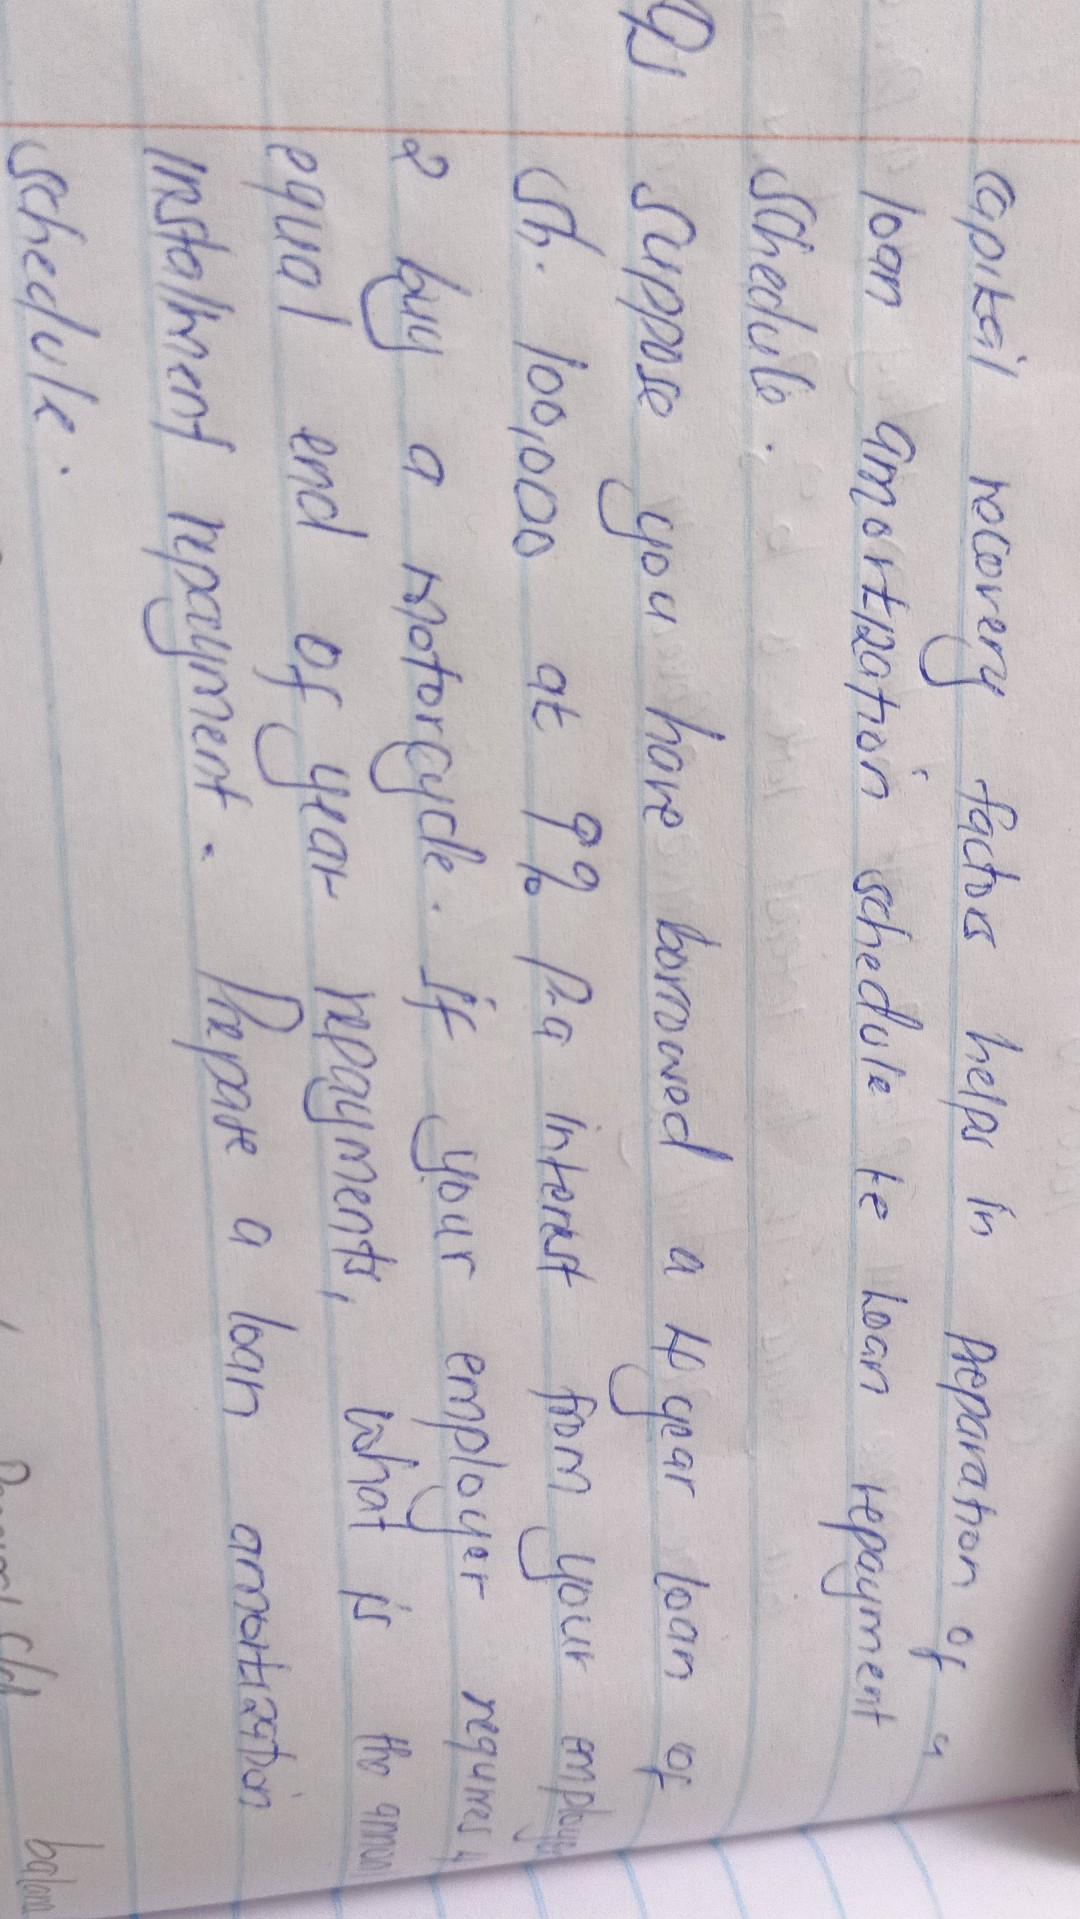 capital recovery factors helps in preparation of a
loan amortization schedule te loan repayment
schedule.
Q] Suppose you have borrowed a 4 year loan of
sh. 100,000 at 9% p.a interest from your employer
2 buy a motorcycle. if your employer requires 4
equal end of year repayments, what is the annual
instalment repayment. Prepare a loan amortization
schedule.